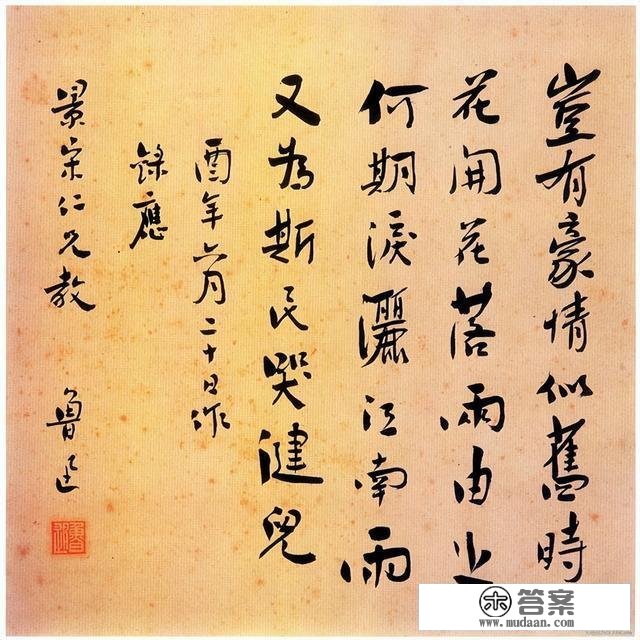 豈有豪情似舊時
花開花落兩由之
何期淚灑江南雨
又為斯民哭健兒
酉年六月二十日作
錄應
景宋仁兄教
魯迅
魯迅
答案
www.mudaan.com